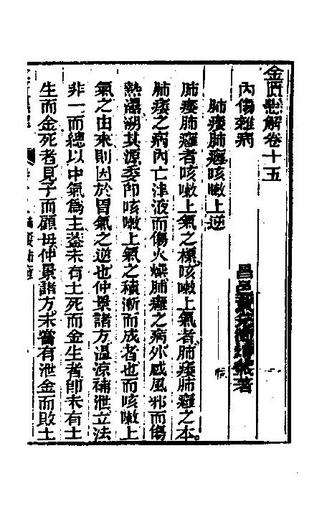 金匱懸解卷十五
昌邑黃元御坤載著
內傷雜病
肺痿肺癰咳嗽上逆
肺痿肺癰者咳嗽上氣之標咳嗽上氣者肺痿肺癰之本
肺痿之病內亡津液而傷火燥肺癰之病外感風邪而傷
熱濕朔其源委卽咳嗽上氣之積漸而成者也而咳嗽上
氣之由來則因於胃氣之逆也仲景諸方溫涼補泄立法
非一而總以中氣為主蓋未有土死而金生者卽未有土
生而金死者見子而顧母仲景諸方未嘗有泄金而敗土